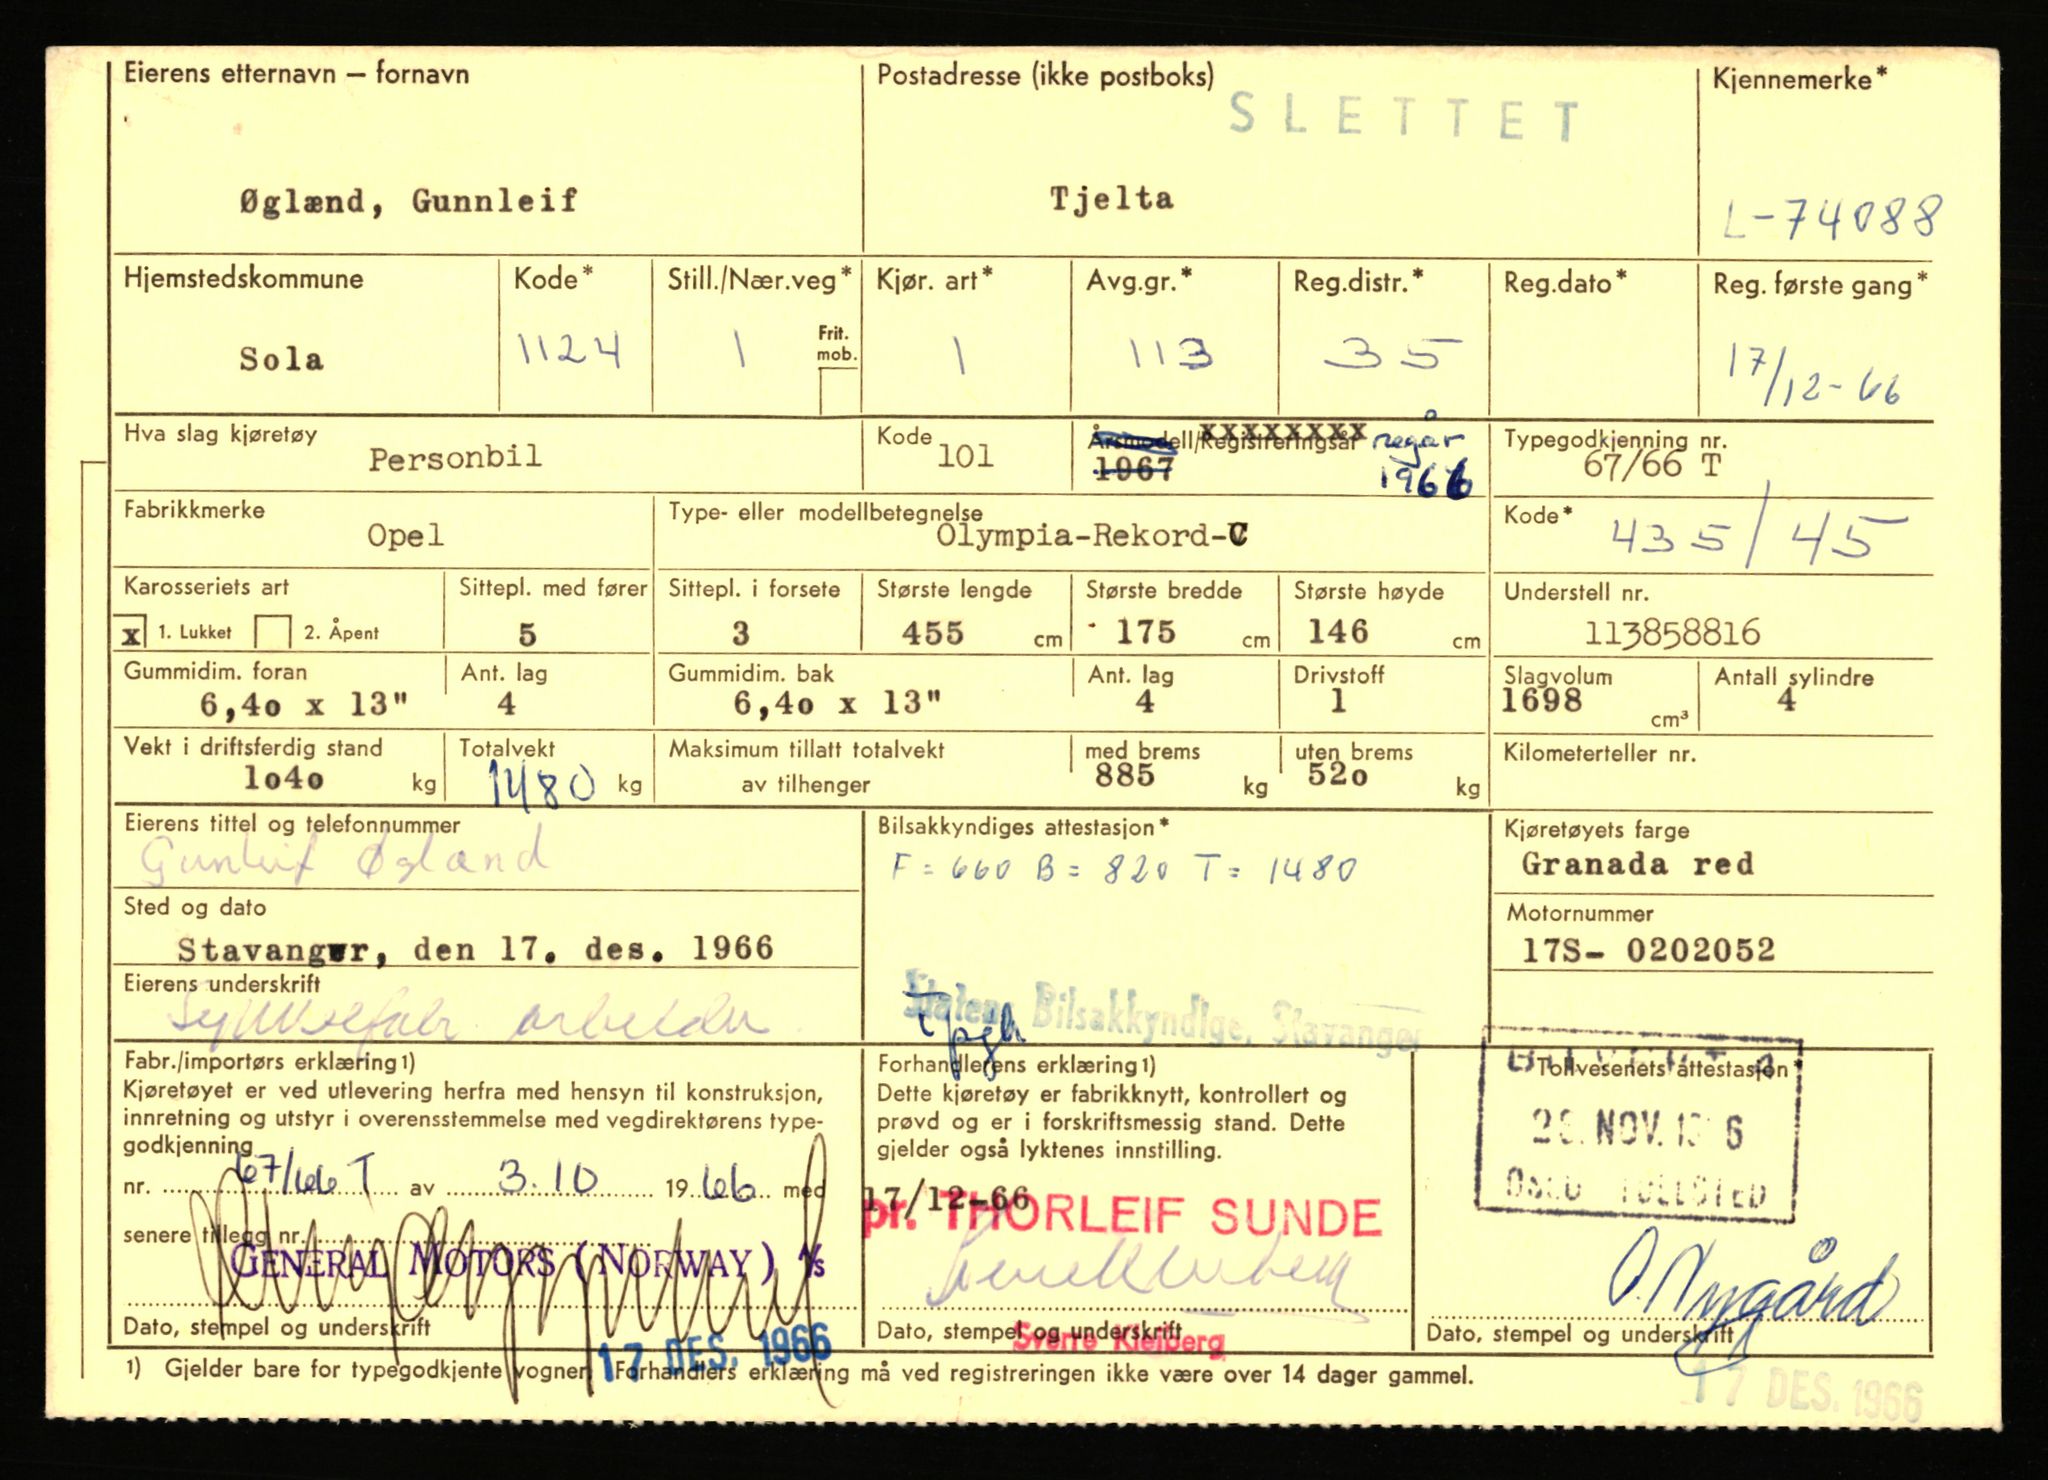 Eierens etternavn – fornavn
Øglænd, Gunnleif
Postadresse (ikke postboks)
SLETTET
Tjelta
Kjennemerke*
L-74088
Hjemstedskommune
Sola
Kode*
1124
Still./Nær.veg*
1
Frit.
mob.
Kjør. art*
1
Avg.gr.*
113
Reg.distr.*
35
Reg.dato*
Reg. første gang*
17/12-66
Hva slag kjøretøy
Personbil
Kode
101
Årsmodell/Registreringsår
xxxxxxxx
regår
1967
1966
Typegodkjenning nr.
67/66 T
Fabrikkmerke
Opel
Type- eller modellbetegnelse
Olympia-Rekord-C
Kode*
435/45
Karosseriets art
x 1. Lukket 2. Åpent
Sittepl. med fører
5
Sittepl. i forsete
3
Største lengde
455 cm
Største bredde
175 cm
Største høyde
146 cm
Understell nr.
113858816
Gummidim. foran
6,4o x 13"
Ant. lag
4
Gummidim. bak
6,4o x 13"
Ant. lag
4
Drivstoff
1
Slagvolum
1698 cm³
Antall sylindre
4
Vekt i driftsferdig stand
1o4o kg
Totalvekt
1480 kg
Maksimum tillatt totalvekt
av tilhenger
med brems
885 kg
uten brems
52o kg
Kilometerteller nr.
Eierens tittel og telefonnummer
Gunleif Øglænd
Bilsakkyndiges attestasjon*
F = 660 B = 820 T = 1480
Kjøretøyets farge
Granada red
Sted og dato
Stavanger, den 17. des. 1966
Motornummer
17S- 0202052
Eierens underskrift
arbeider
Statens Bilsakkyndige, Stavanger
Fabr./importørs erklæring1)
Kjøretøyet er ved utlevering herfra med hensyn til konstruksjon,
innretning og utstyr i overensstemmelse med vegdirektørens type-
godkjenning
nr. 67/66 T av 3.10 1966 med
senere tillegg nr.
GENERAL MOTORS (NORWAY) A/S
Dato, stempel og underskrift
17 DES. 1966
Forhandlerens erklæring1)
Dette kjøretøy er fabrikknytt, kontrollert og
prøvd og er i forskriftsmessig stand. Dette
gjelder også lyktenes innstilling.
17/12-66
pr. THORLEIF SUNDE
Dato, stempel og underskrift
Sverre Kleiberg
Tollvesenets attestasjon*
NOV. 1966
OSLO TOLLSTED
O. Nygård
Dato, stempel og underskrift
17 DES. 1966
1) Gjelder bare for typegodkjente vogner. Forhandlers erklæring må ved registreringen ikke være over 14 dager gammel.